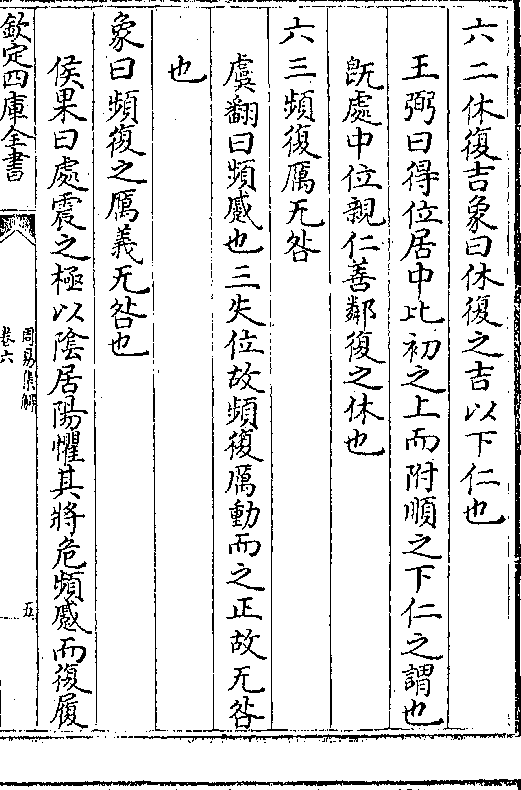 六二休復吉象曰休復之吉以下仁也
王弼曰得位居中比初之上而附順之下仁之謂也
旣處中位親仁善鄰復之休也
六三頻復厲无咎
虞翻曰頻蹙也三失位故頻復厲動而之正故无咎
也
象曰頻復之厲義无咎也
侯果曰處震之極以陰居陽懼其將危頻蹙而復履
欽定四庫全書
周易集解
卷六
五